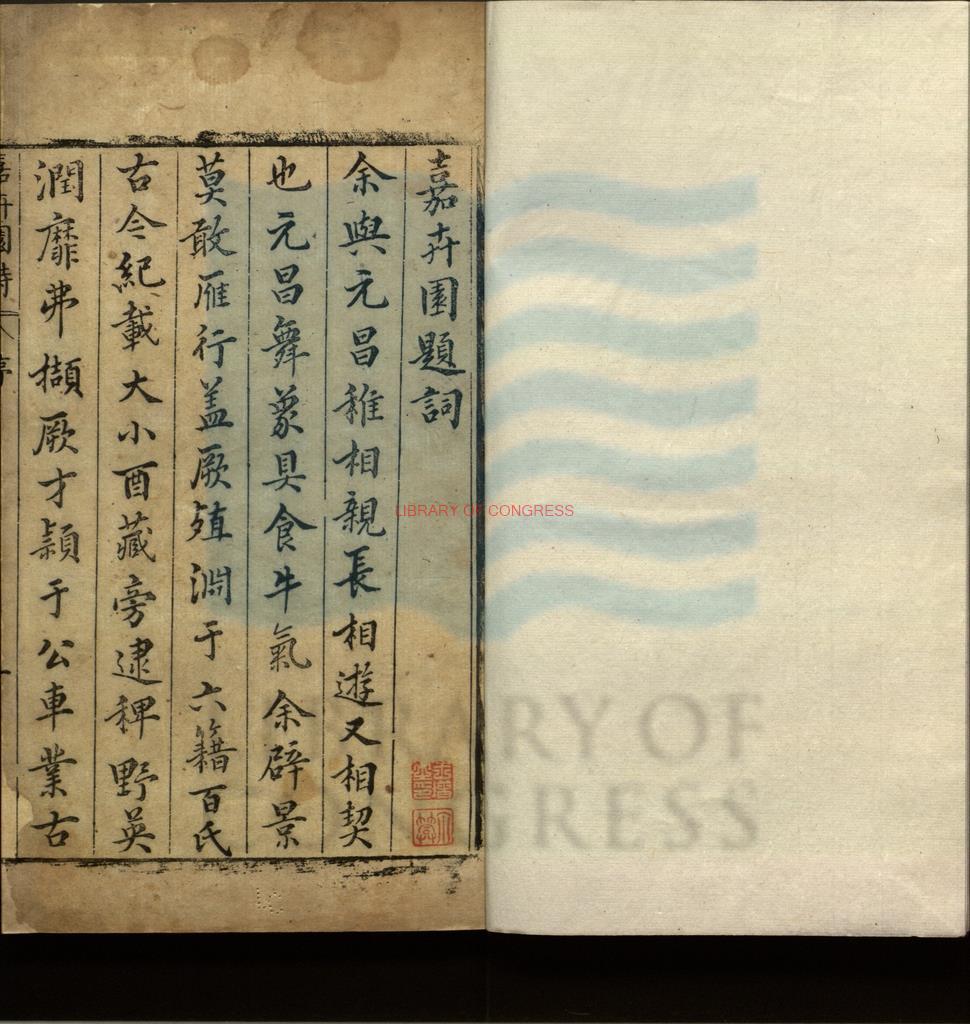 嘉卉園題詞
余與元昌稚相親長相遊又相契
也元昌舞蒙具食牛氣余辟景
莫敢雁行盖厥殖淵于六籍百氏
古今紀載大小酉藏旁逮稗野英
潤靡弗擷厥才穎于公車業古
嘉卉園詩 序 一
LIBRARY OF CONGRESS
LIBRARY OF
CONGRESS